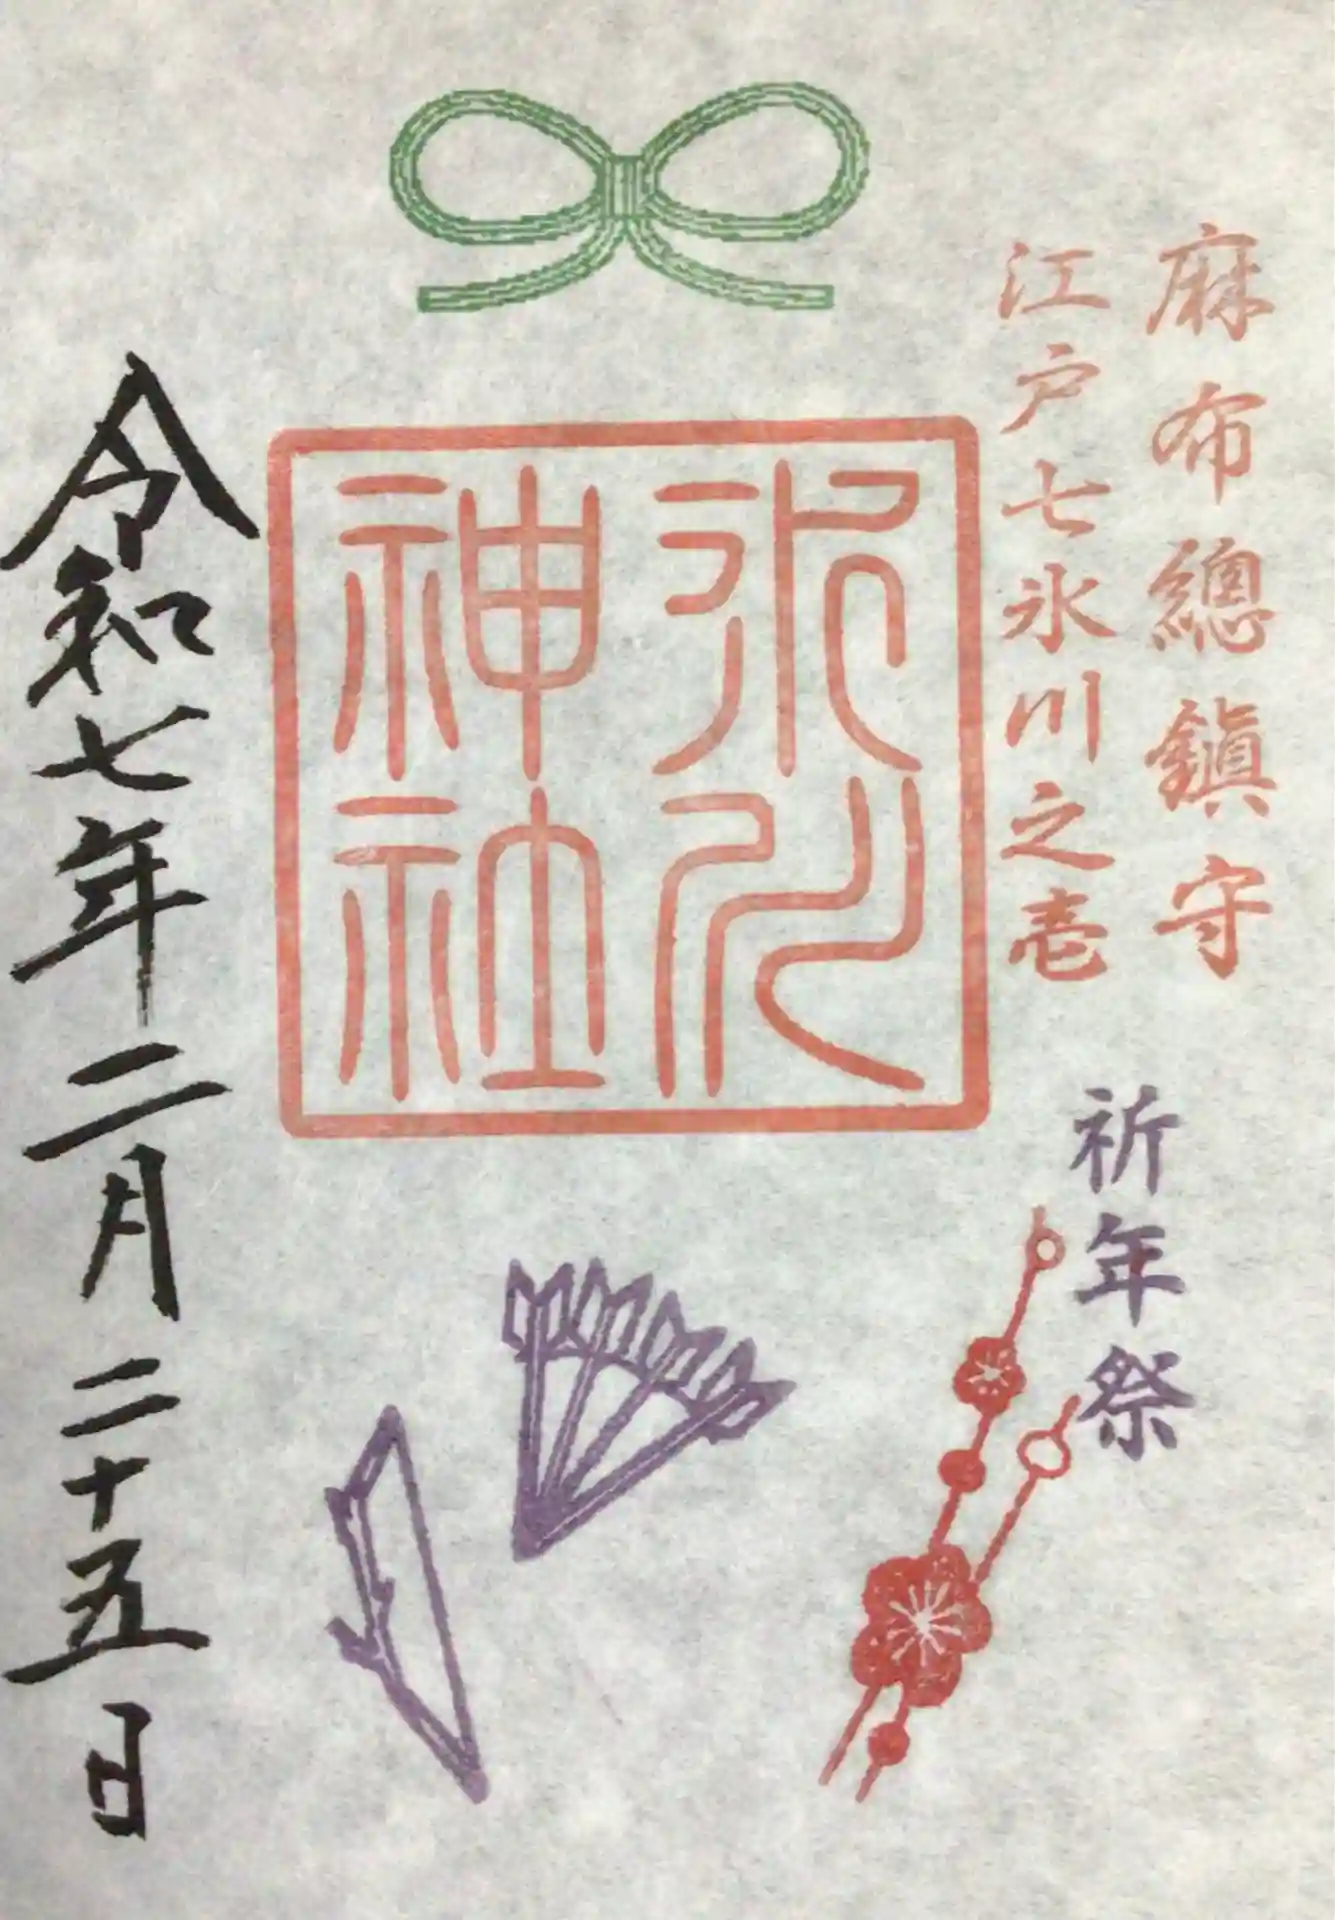 麻布總鎭守
江戸七氷川之壱
祈年祭
氷川
神社
令和七年二月二十五日